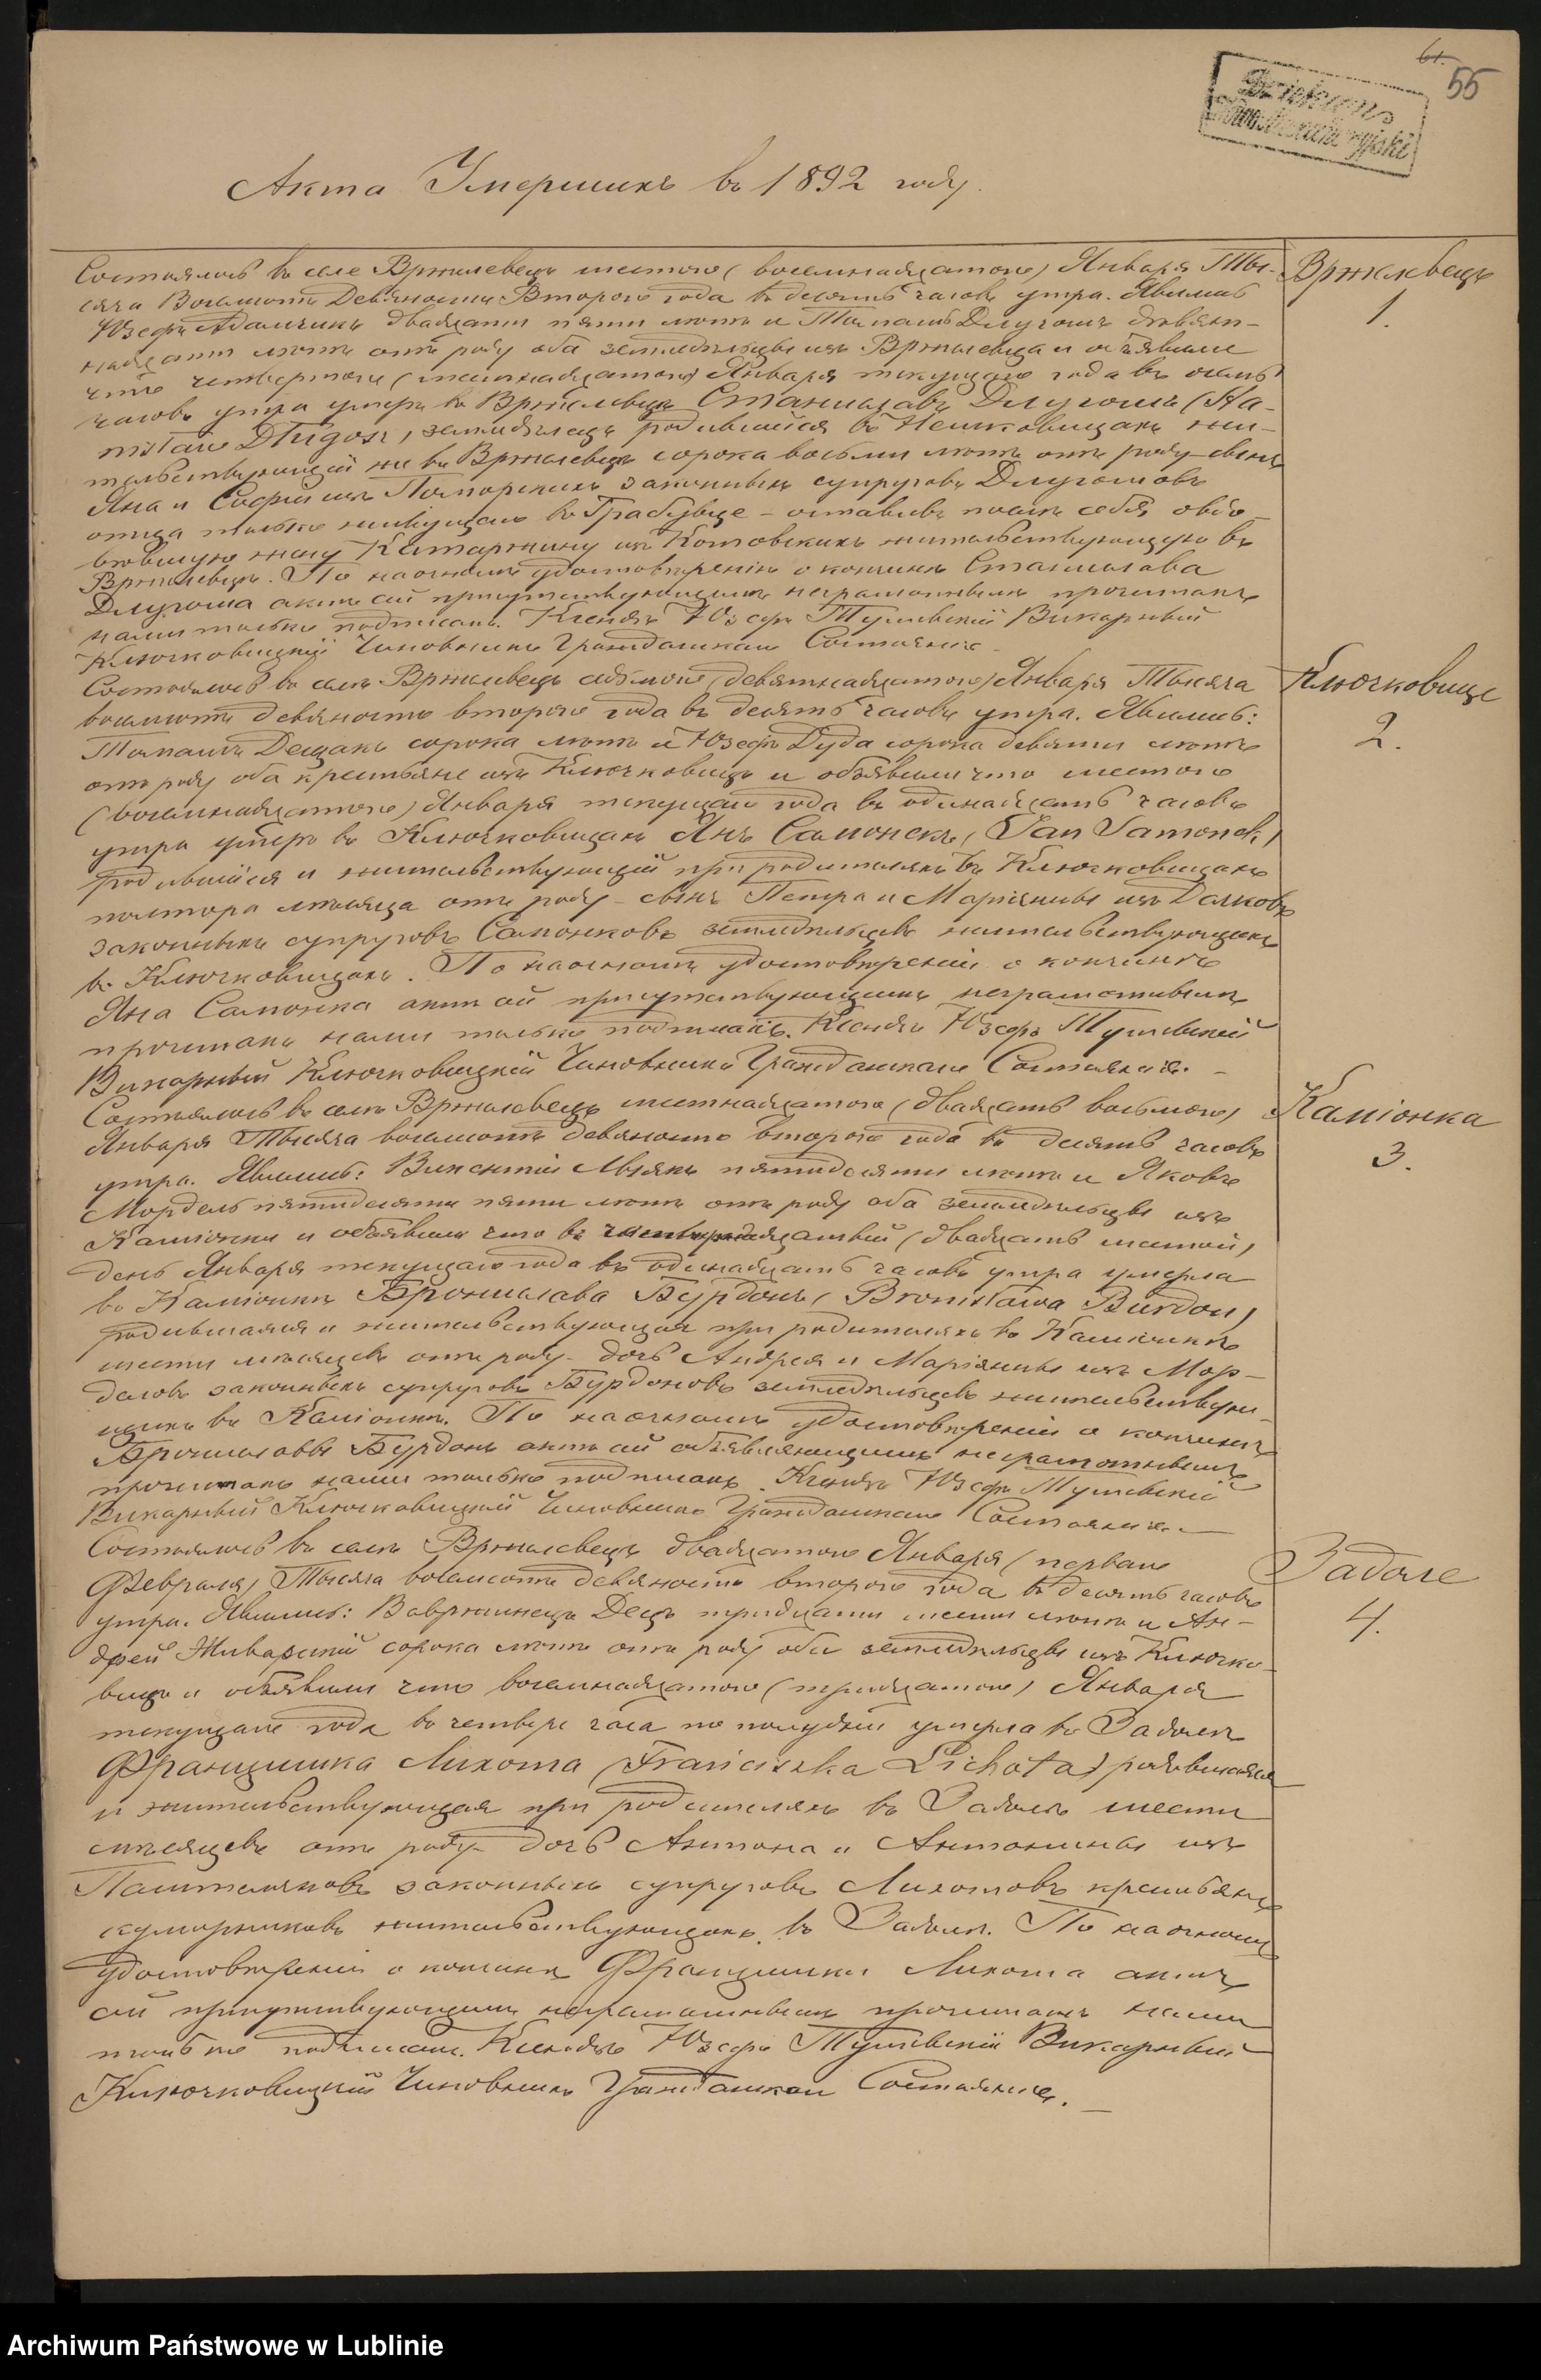 61.
55
Dziekan
Nowoaleksandryjski
Акта Умершихъ въ 1892 году.
Состоялось въ селе Вржелевецъ шестого (восемнадцатого) Января Ты-
сяча Восемьсотъ Девяносто Второго года въ десять часовъ утра. Явились
Юзефъ Адамчикъ двадцати пяти летъ и Томашъ Длугошъ девят-
надцати летъ отъ роду оба земледельцы изъ Вржелевца и объявили
что четвертого (шестнадцатого) Января текущаго года въ
часовъ утра умеръ въ Вржелевце Станиславъ Длугошъ (Sta-
nisław Długosz) земледелецъ родившійся въ жи-
тельствующій же въ Вржелевце сорока восьми летъ отъ роду сынъ
Яна и Софіи изъ законныхъ супруговъ Длугошовъ
отца только живущаго въ Грабувце - оставивъ после себя овдо-
вевшую жену Катаржину изъ Котовскихъ жительствующую въ
Вржелевце. По наочномъ удостовереніи о кончине Станислава
Длугоша актъ сей присутствующимъ неграмотнымъ прочитанъ
нами только подписанъ. Ксендзъ Юзефъ Викарный
Ключковицкій Чиновникъ Гражданскаго Состоянія.
Состоялось въ селе Вржелевецъ седьмого (девятнадцатого) Января Тысяча
восемьсотъ девяносто второго года въ десять часовъ утра. Явились:
Томашъ Децъ сорока летъ и Юзефъ Дуда сорока девяти летъ
отъ роду оба крестьяне изъ Ключковицъ и объявили что шестого
(восемнадцатого) Января текущаго года въ одинадцать часовъ
утра умеръ въ Ключковицахъ Янъ Самонекъ (Jan Samonek)
родившійся и жительствующій при родителяхъ въ Ключковицахъ
полтора месяца отъ роду - сынъ Петра и Маріянны изъ
законныхъ супруговъ Самонковъ земледельцевъ жительствующихъ
въ Ключковицахъ. По наочномъ удостовереніи о кончине
Яна Самонка актъ сей присутствующимъ неграмотнымъ
прочитанъ нами только подписанъ. Ксендзъ Юзефъ
Викарный Ключковицкій Чиновникъ Гражданскаго Состоянія. -
Состоялось въ селе Вржелевецъ шестнадцатого (двадцать восьмого)
Января Тысяча восемьсотъ девяносто второго года въ десять часовъ
утра. Явились: Викентій пятидесяти летъ и Яковъ
Мордель пятидесяти пяти летъ отъ роду оба земледельцы изъ
Каміонки и объявили что въ четырнадцатый (двадцать шестой)
день Января текущаго года въ одинадцать часовъ утра умерла
въ Каміонке Бронислава Бурдонъ (Bronisława Burdon)
родившаяся и жительствующая при родителяхъ въ Каміонке
шести месяцевъ отъ роду - дочь Андрея и Маріянны изъ Мор-
деловъ законныхъ супруговъ Бурдоновъ земледельцевъ жительствую-
щихъ въ Каміонке. По наочномъ удостовереніи о кончине
Брониславы Бурдонъ актъ сей объявляющимъ неграмотнымъ
прочитанъ нами только подписанъ. Ксендзъ Юзефъ
Викарный Ключковицкій Чиновникъ Гражданскаго Состоянія. -
Состоялось въ селе Вржелевецъ двадцатого Января (перваго
Февраля) Тысяча восемьсотъ девяносто второго года въ десять часовъ
утра. Явились: Вавржинецъ Децъ тридцати шести летъ и Ан-
дрей сорока летъ отъ роду оба земледельцы изъ Ключко-
вицъ и объявили что восемнадцатого (тридцатого) Января
текущаго года въ четыре часа по полудни умерла въ Задоле
Францишка Лихота (Franciszka Lichota) родившаяся
и жительствующая при родителяхъ въ Задоле шести
месяцевъ отъ роду - дочь Антона и Антонины изъ
законныхъ супруговъ Лихотовъ крестьянъ
жительствующихъ въ Задоле. По наочномъ
удостовереніи о кончине Францишки Лихота актъ
сей присутствующимъ неграмотнымъ прочитанъ нами
только подписанъ. Ксендзъ Юзефъ Викарный
Ключковицкій Чиновникъ Гражданскаго Состоянія. -
Вржелевецъ
1.
Ключковице
2.
Каміонка
3.
Задоле
4.
Archiwum Państwowe w Lublinie